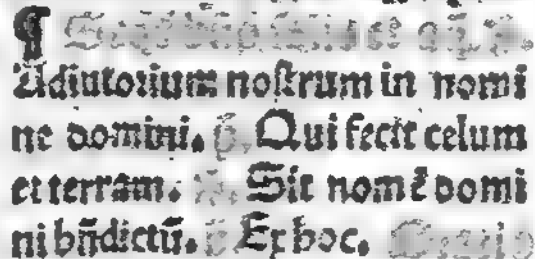 ¶
Adiutorium nostrum in nomi
ne domini. Qui fecit celum
et terram. Sit nomē domi
ni bn̄dictū. Ex hoc.